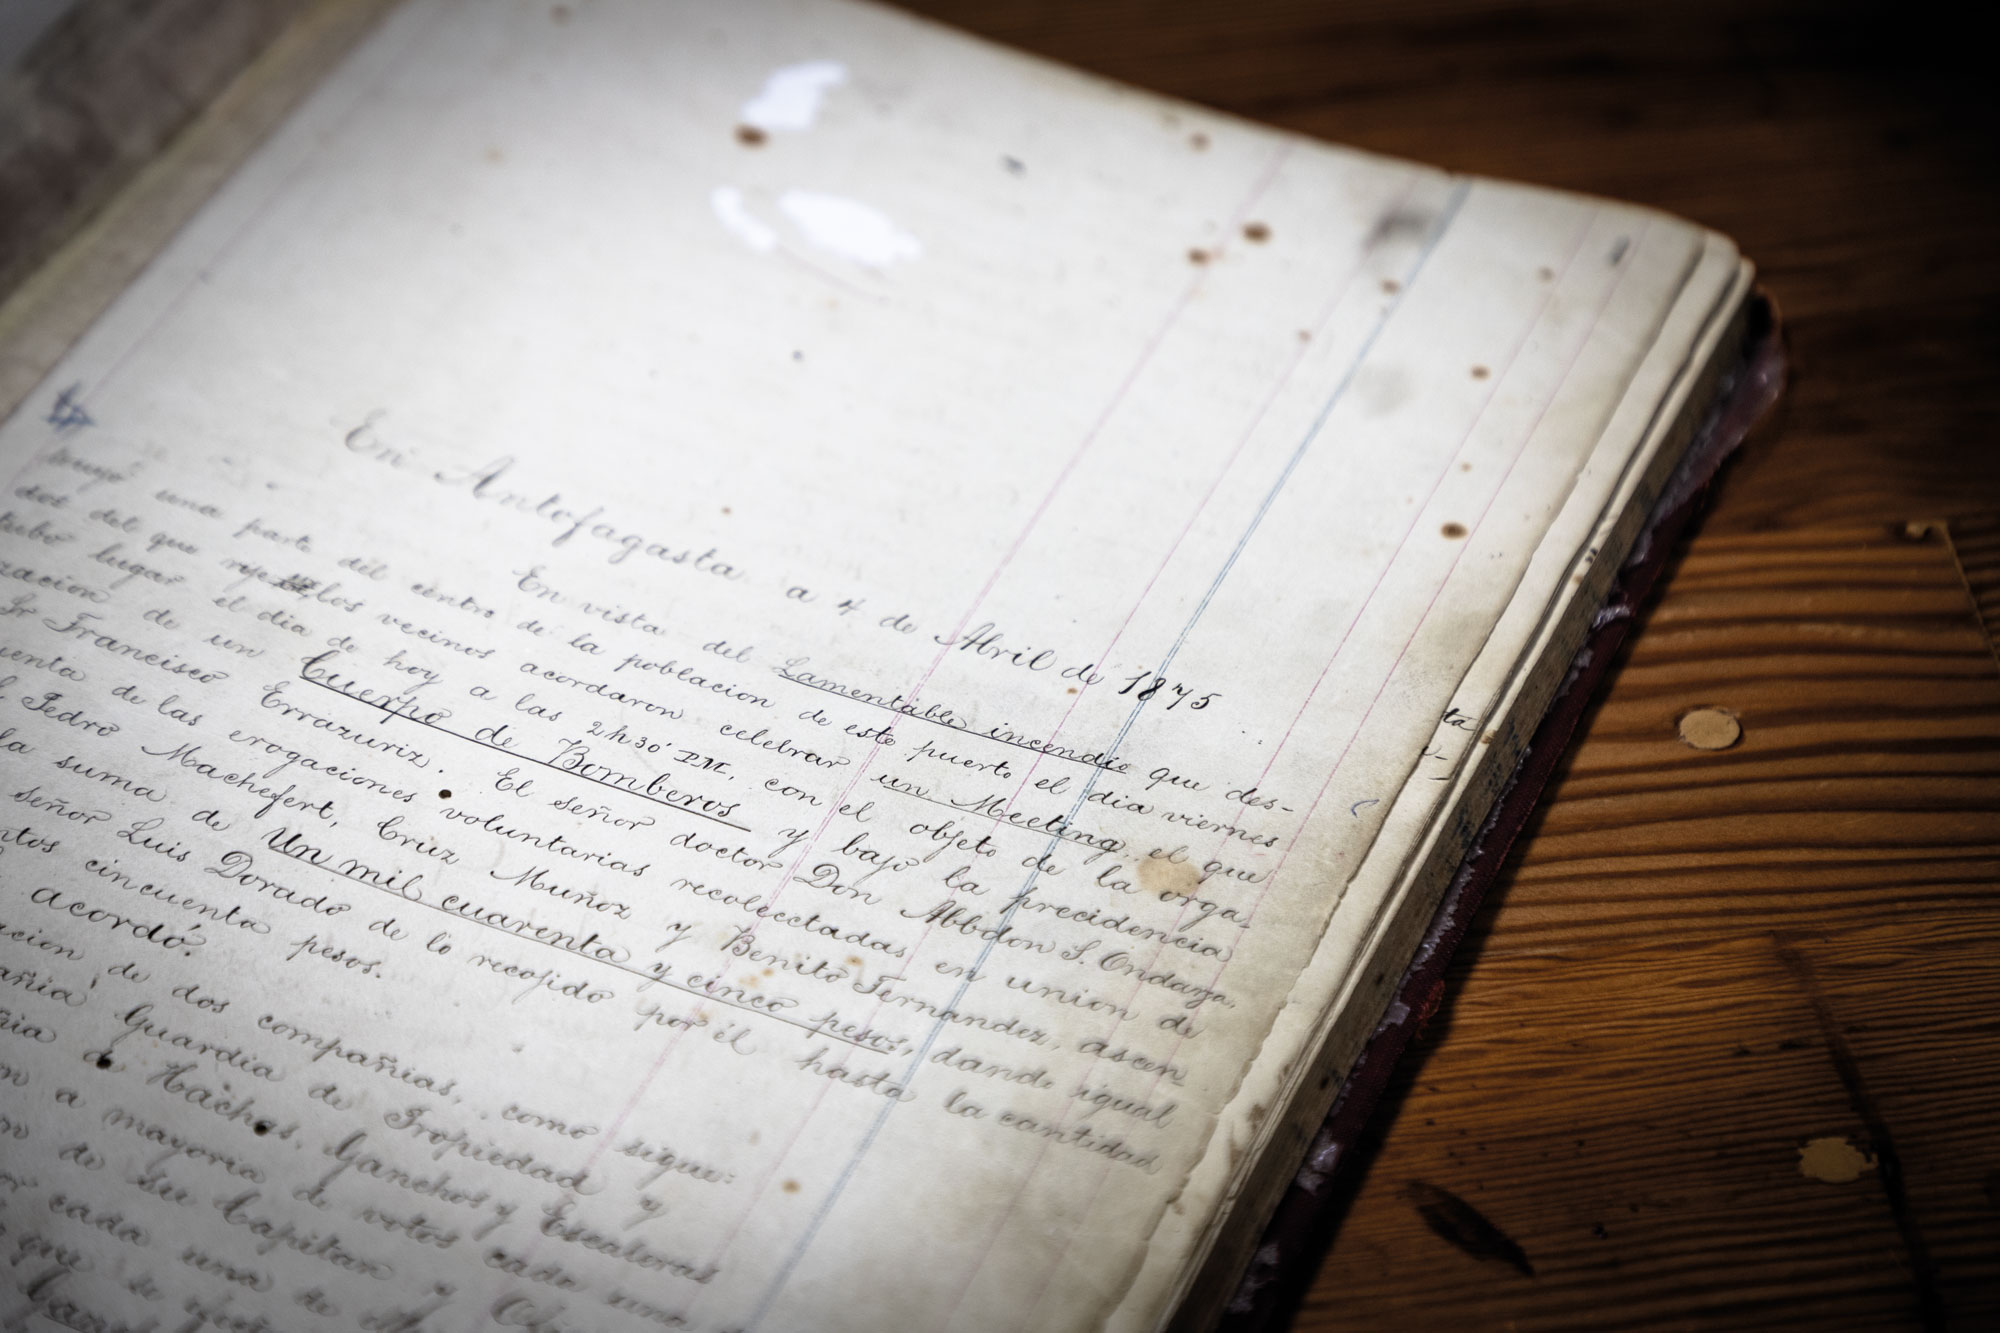 En Antofagasta a 4 de Abril de 1875
En vista del Lamentable incendio que des-
truyó una parte del centro de la poblacion de este puerto el dia viernes
dos del que rije los vecinos acordaron celebrar un Meeting, el que
tubo lugar el dia de hoy a las 2h 30' P.M. con el objeto de la orga-
zacion de un Cuerpo de Bomberos y bajo la precidencia
Sr Francisco Errazuriz. El señor doctor Don Abbdon S. Ondarza,
uenta de las erogaciones voluntarias recoleectadas en union de
Pedro Machefert, Cruz Muñoz y Benito Fernandez, ascen
la suma de Un mil cuarenta y cinco pesos, dando igual
señor Luis Dorado de lo recojido por él hasta la cantidad
ntos cincuenta pesos.
acordó:
acion de dos compañias, como sigue:
añia Guardia de Propiedad y
ñia de Hachas, Ganchos y Escaleras
a mayoria de votos cada una
de su Capitan y
cada una de
que se
ta